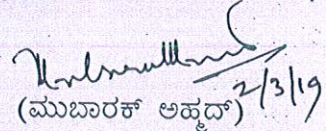 2/3/19
(ಮುಬಾರಕ್ ಅಹ್ಮದ್)